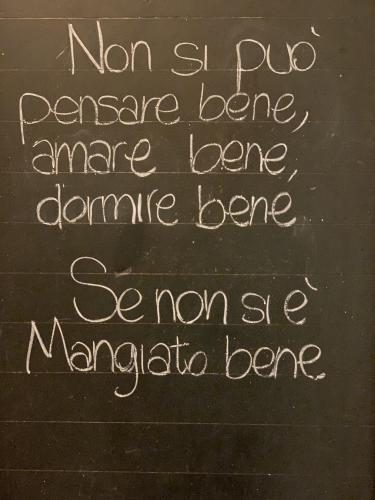 Non si può
pensare bene,
amare bene,
dormire bene
Se non si è
Mangiato bene.